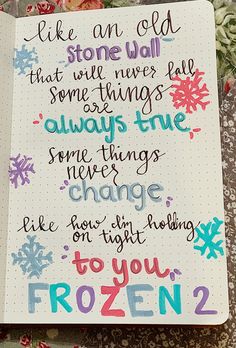 like an old
stone wall
that will never fall
some things
are
always true
some things
never
change
like how i'm holding
on tight
to you
FROZEN 2